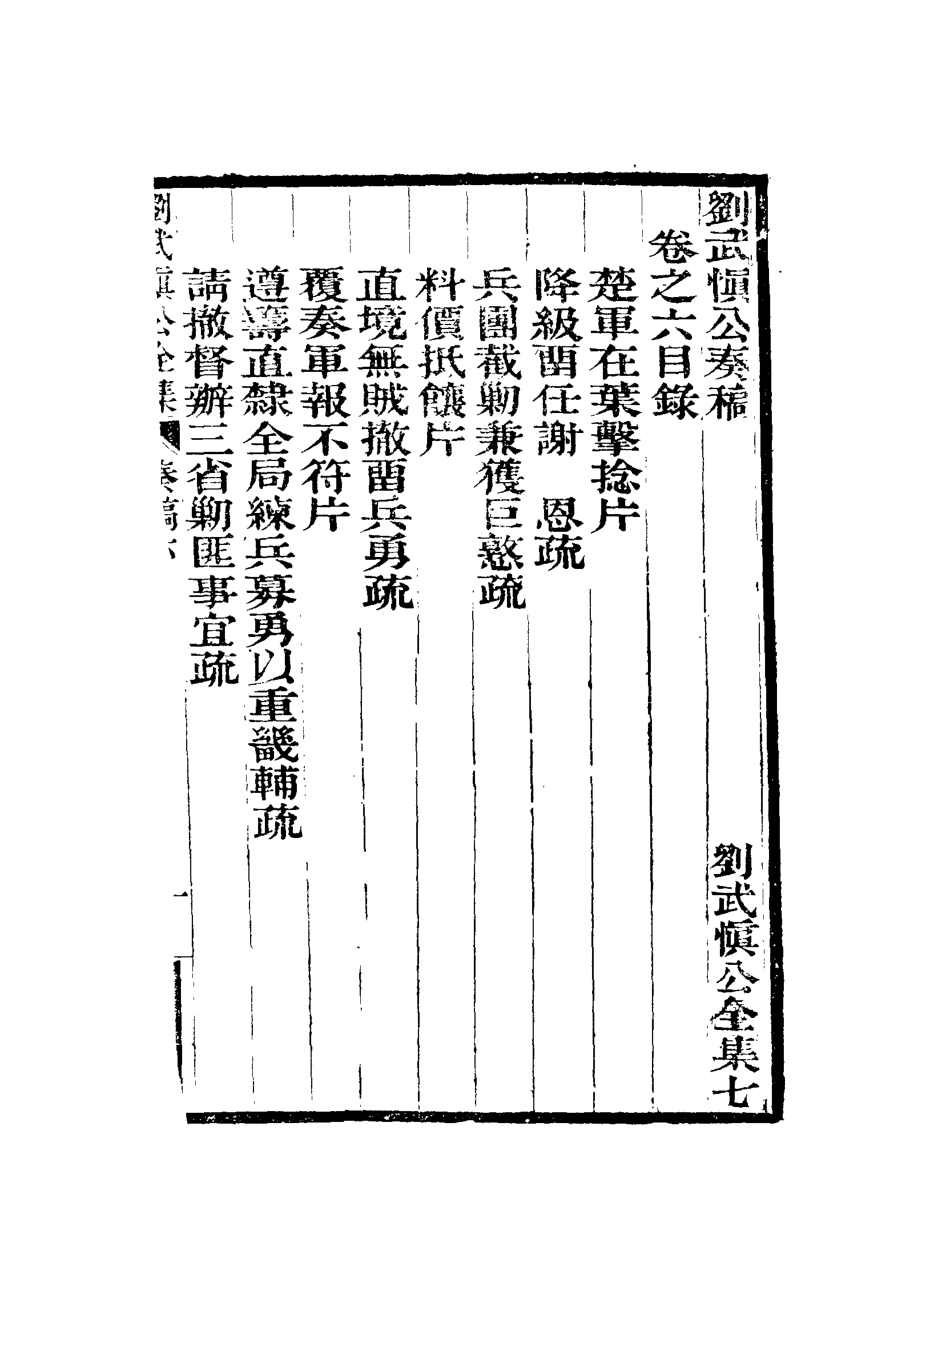 劉武愼公奏稿　劉武愼公全集七
卷之六目錄
楚軍在葉擊捻片
降級畱任謝　恩疏
兵團截勦兼獲巨憝疏
料價抵饟片
直境無賊撤畱兵勇疏
覆奏軍報不符片
遵籌直隸全局練兵募勇以重畿輔疏
請撤督辦三省勦匪事宜疏
劉武愼公全集　奏稿六　一